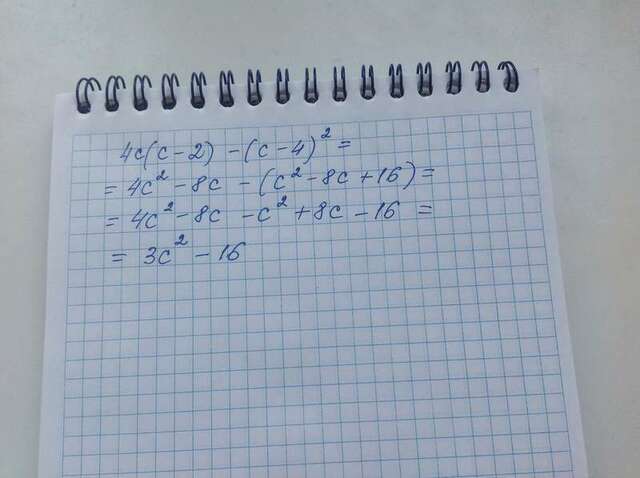 4c(c-2) -(c-4)² =
= 4c² -8c -(c² -8c +16) =
= 4c² -8c -c² +8c -16 =
= 3c² -16